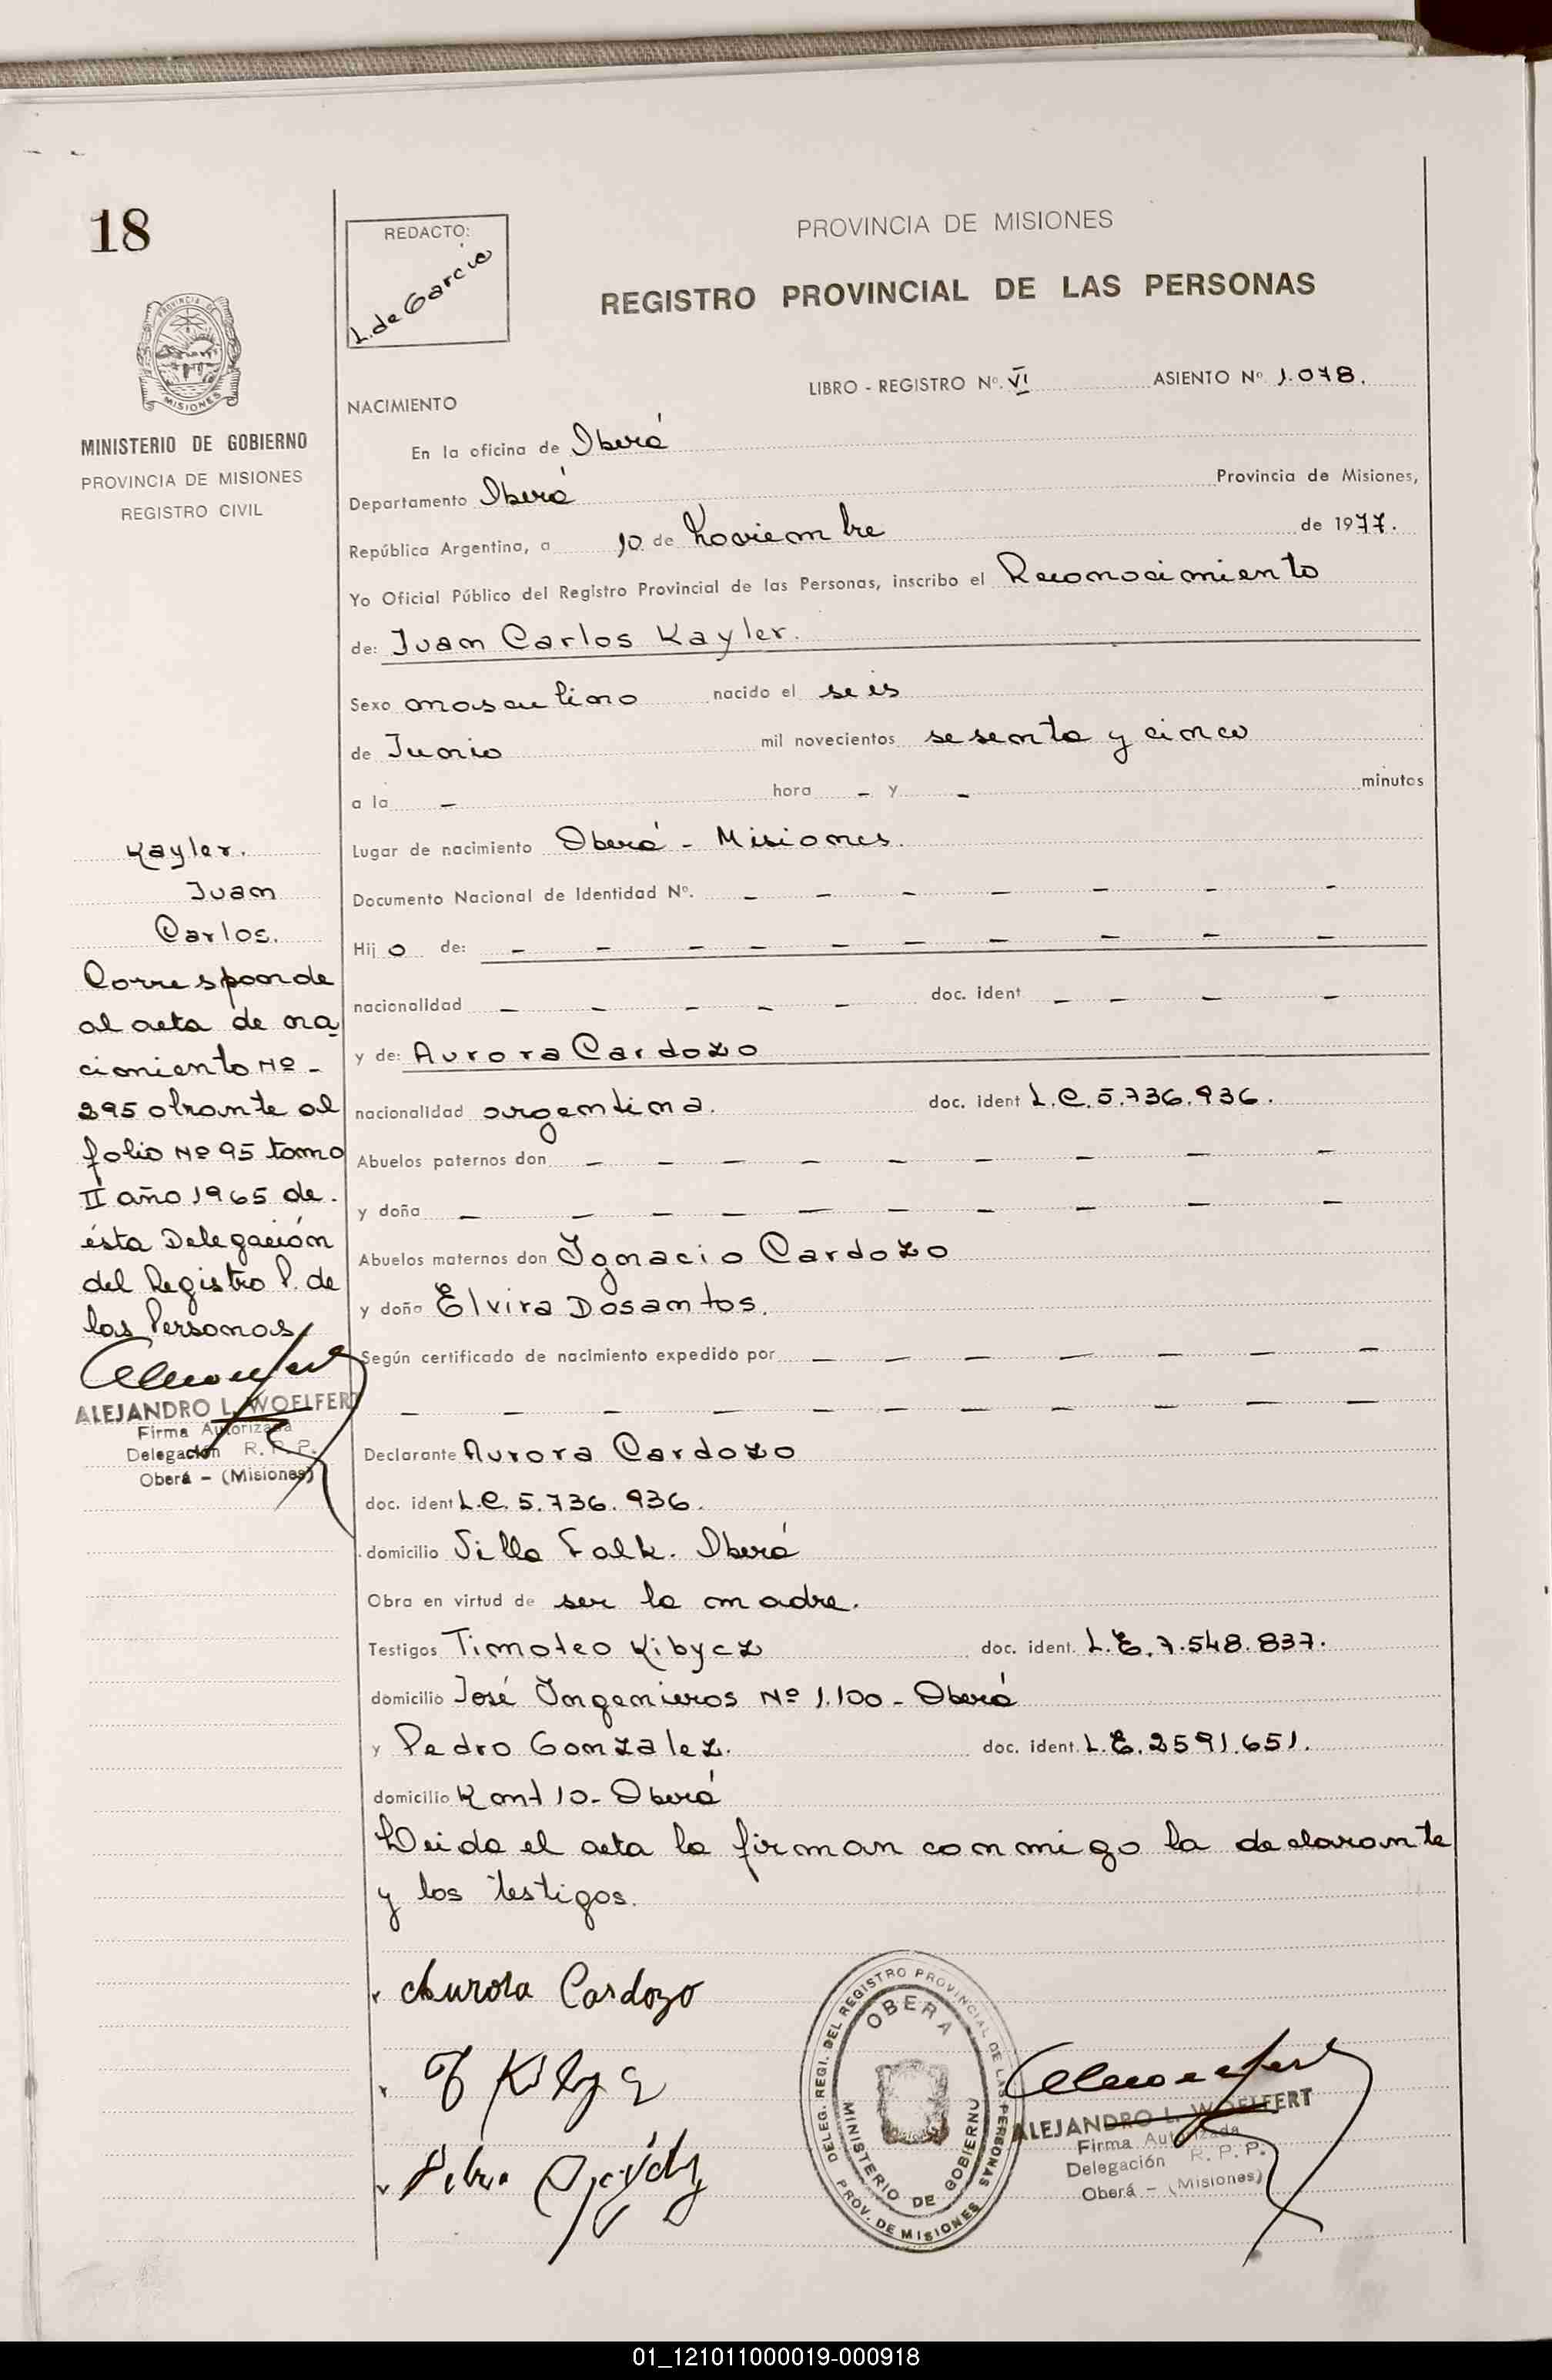 18
REDACTO:
L. de Garcia
PROVINCIA DE MISIONES
REGISTRO PROVINCIAL DE LAS PERSONAS
PROVINCIA DE
MISIONES
MINISTERIO DE GOBIERNO
PROVINCIA DE MISIONES
REGISTRO CIVIL
LIBRO - REGISTRO Nº. VI ASIENTO Nº 1.078.
NACIMIENTO
En la oficina de Oberá
Departamento Oberá Provincia de Misiones,
República Argentina, a 10 de Noviembre de 1977.
Yo Oficial Público del Registro Provincial de las Personas, inscribo el Reconocimiento
de: Juan Carlos Kayler.
Sexo masculino nacido el seis
de Junio mil novecientos sesenta y cinco
a la - hora - y - minutos
Lugar de nacimiento Oberá - Misiones.
Documento Nacional de Identidad Nº. - - - - - - -
Hij o de: - - - - - - - - - -
nacionalidad - - - - - doc. ident - - - -
y de: Aurora Cardozo
nacionalidad argentina. doc. ident L.C. 5.736.936.
Abuelos paternos don - - - - - - - - -
y doña - - - - - - - - - -
Abuelos maternos don Ignacio Cardozo
y doña Elvira Dosantos.
Según certificado de nacimiento expedido por - - - - - - -
- - - - - - - - - - -
Declarante Aurora Cardozo
doc. ident L.C. 5.736.936.
domicilio Villa Falk. Oberá
Obra en virtud de ser la madre.
Testigos Timoteo Kibycz doc. ident. L.E. 7.548.837.
domicilio José Ingenieros Nº 1.100 - Oberá
y Pedro Gonzalez. doc. ident. L.E. 2591.651.
domicilio Kmt 10 - Oberá
Leida el acta la firman conmigo la declarante
y los testigos.
Kayler.
Juan
Carlos.
Corresponde
al acta de na
cimiento Nº -
295 obrante al
folio Nº 95 tomo
II año 1965 de
ésta Delegación
del Registro P. de
las Personas
ALEJANDRO L. WOELFERT
Firma Autorizada
Delegación R. P. P.
Oberá - (Misiones)
Aurora Cardozo
DELEG. REGI. DEL REGISTRO PROVINCIAL DE LAS PERSONAS
OBERA
MINISTERIO DE GOBIERNO
PROV. DE MISIONES
ALEJANDRO L. WOELFERT
Firma Autorizada
Delegación R. P. P.
Oberá - (Misiones)
01_121011000019-000918